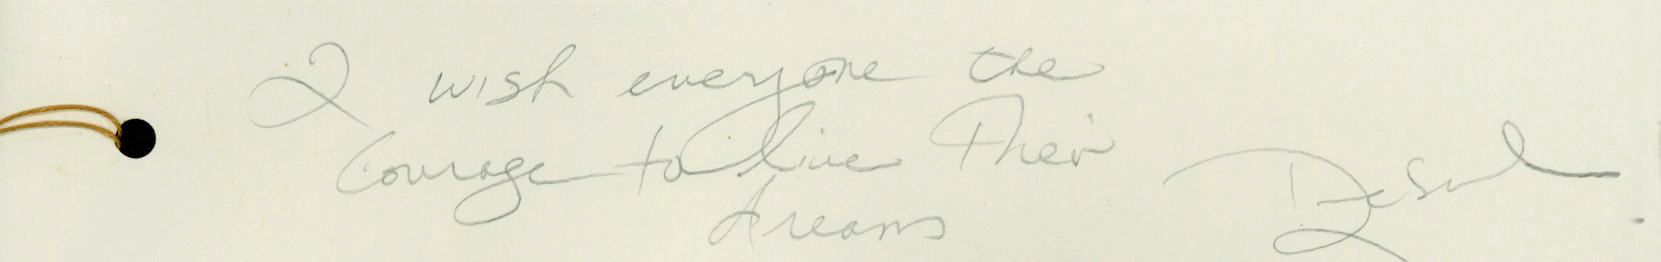 I wish everyone the
Courage to live Their
dreams